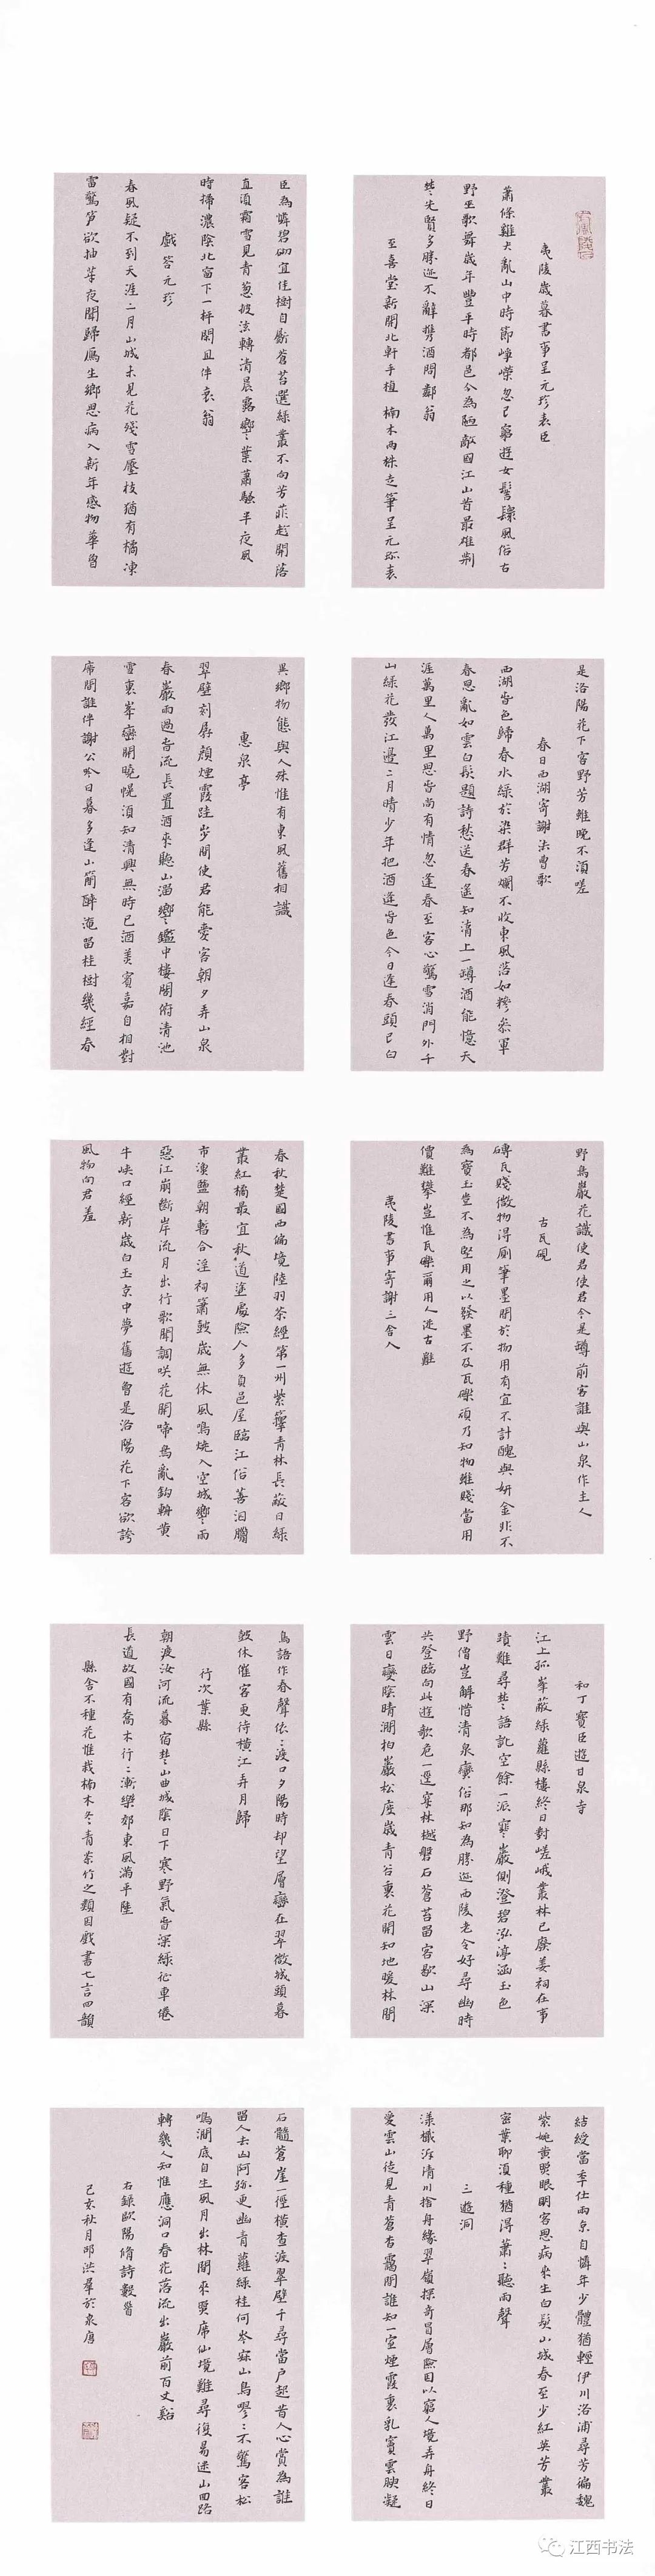 夷陵歲暮書事呈元珍表臣
蕭條雞犬亂山中時節崢嶸忽已窮遊女髻鬟風俗古
野巫歌舞歲年豐平時都邑今為陋敵國江山昔最雄荆
楚先賢多勝迹不辭攜酒問鄰翁
至喜堂新開北軒手植楠木兩株走筆呈元珍表
臣為憐碧砌宜佳樹自斸蒼苔選綠叢不向芳菲趁開落
直須霜雪見青蔥披泫轉清晨露響葉蕭騷半夜風
時掃濃陰北窗下一枰閑且伴衰翁
戲答元珍
春風疑不到天涯二月山城未見花殘雪壓枝猶有橘凍
雷驚筍欲抽芽夜聞歸雁生鄉思病入新年感物華曾
是洛陽花下客野芳雖晚不須嗟
春日西湖寄謝法曹歌
西湖春色歸春水綠於染群芳爛不收東風落如糝參軍
春思亂如雲白髮題詩愁送春遙知湖上一罇酒能憶天
涯萬里人萬里思春尚有情忽逢春至客心驚雪消門外千
山綠花發江邊二月晴少年把酒逢春色今日逢春頭已白
異鄉物態與人殊惟有東風舊相識
惠泉亭
翠壁刻孱顏煙霞跬步間使君能愛客朝夕弄山泉
春巖雨過春流長置酒來聽山溜響鑑中樓閣俯清池
雪裏峯巒開曉幌須知清興無時已酒美賓嘉自相對
席間誰伴謝公吟日暮多逢山簡醉淹留桂樹幾經春
野鳥巖花識使君使君今是罇前客誰與山泉作主人
古瓦硯
磚瓦賤微物得廁筆墨間於物用有宜不計醜與妍金非不
為寶玉豈不為堅用之以發墨不及瓦礫頑乃知物雖賤當用
價難攀豈惟瓦礫爾用人從古難
夷陵書事寄謝三舍人
春秋楚國西偏境陸羽茶經第一州紫籜青林長蔽日綠
叢紅橘最宜秋道塗處險人多負邑屋臨江俗善泅臘
市漁鹽朝暫合淫祠簫鼓歲無休風鳴燒入空城響雨
惡江崩斷岸流月出行歌聞調笑花開啼鳥亂鉤輈黃
牛峽口經新歲白玉京中夢舊遊曾是洛陽花下客欲誇
風物向君羞
和丁寶臣遊甘泉寺
江上孤峯蔽綠蘿縣樓終日對嵯峨叢林已廢姜祠在事
蹟難尋楚語訛空餘一派寒巖側澄碧泓渟涵玉色
野僧豈解惜清泉蠻俗那知為勝迹西陵老令好尋幽時
共登臨向此遊欹危一逕穿林樾磐石蒼苔留客歇山深
雲日變陰晴澗柏巖松度歲青谷裏花開知地暖林間
鳥語作春聲依依渡口夕陽時却望層巒在翠微城頭暮
鼓休催客更待橫江弄月歸
行次葉縣
朝渡汝河流暮宿楚山曲城陰日下寒野氣春深綠征車倦
長道故國有喬木行行漸樂郊東風滿平陸
縣舍不種花惟栽楠木冬青茶竹之類因戲書七言四韻
結綬當年仕兩京自憐年少體猶輕伊川洛浦尋芳徧魏
紫姚黃照眼明客思病來生白髮山城春至少紅英芳叢
密葉聊須種猶得蕭蕭聽雨聲
三遊洞
漾檝泝清川捨舟緣翠嶺探奇冒層險因以窮人境弄舟終日
愛雲山徒見青蒼杳靄間誰知一室煙霞裏乳竇雲腴凝
石髓蒼崖一徑橫查渡翠壁千尋當戶起昔人心賞為誰
留人去山阿跡更幽青蘿綠桂何岑寂山鳥嘐嘐不驚客松
鳴澗底自生風月出林間來照席仙境難尋復易迷山回路
轉幾人知惟應洞口春花落流出巖前百丈谿
右錄歐陽脩詩數首
己亥秋月邱洪羣於泉廬
江西书法